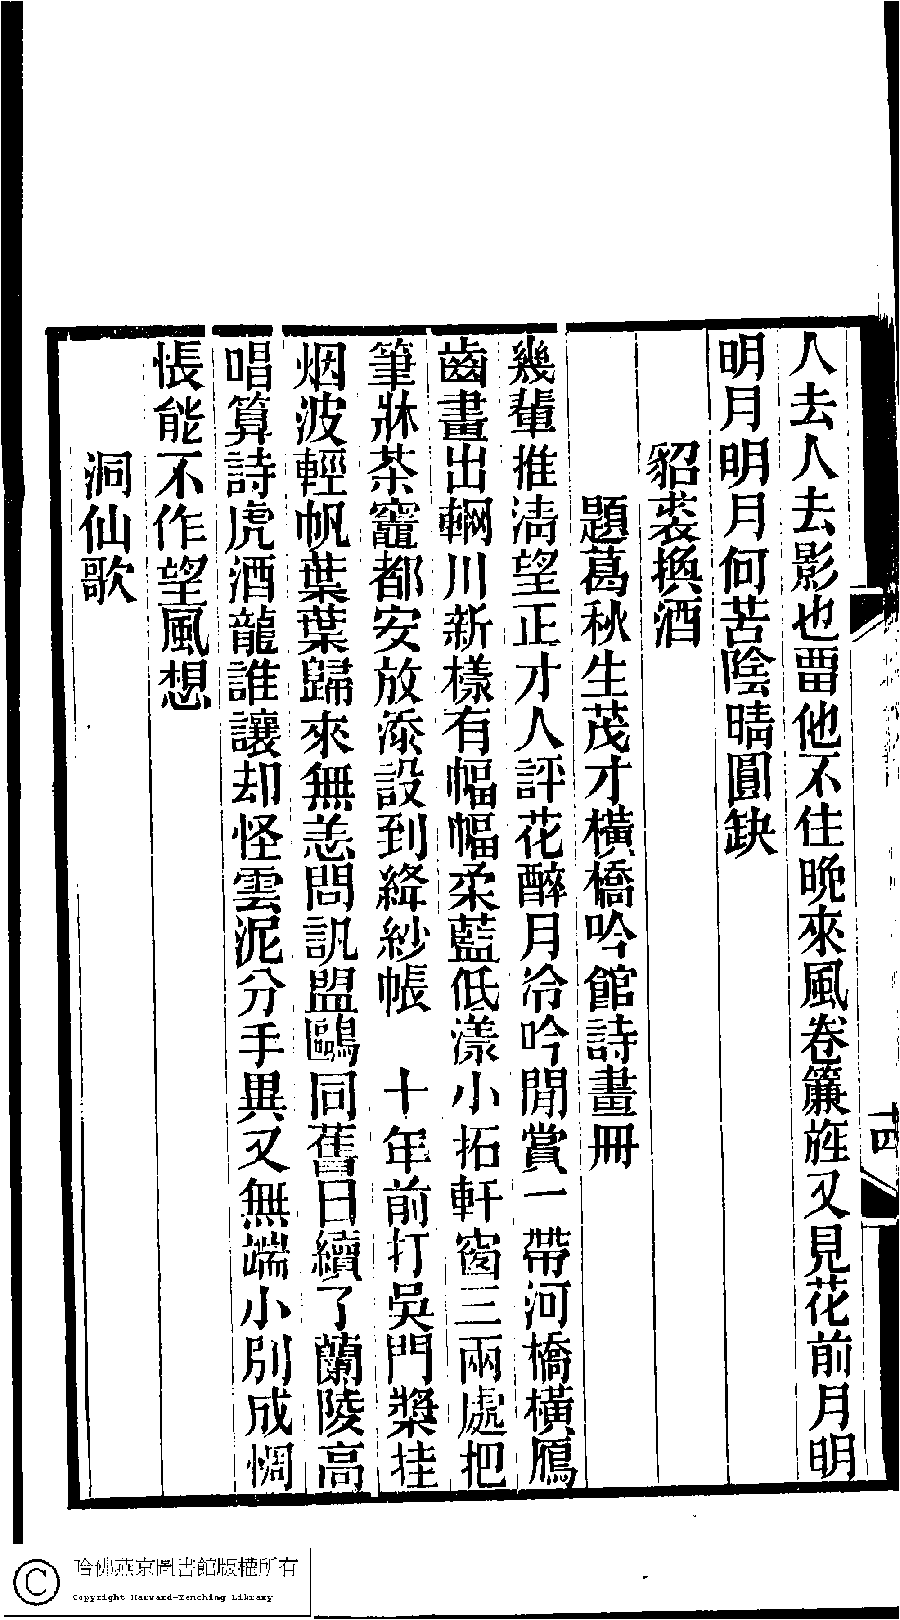 人去人去影也畱他不住晚來風卷簾旌又見花前月明
明月明月何苦陰晴圓缺
貂裘換酒
題葛秋生茂才橫橋吟館詩畫冊
幾輩推淸望正才人評花醉月冷吟閒賞一帶河橋橫鴈
齒畫出輞川新樣有幅幅柔藍低漾小拓軒窗三兩處把
筆牀茶竈都安放添設到絳紗帳　十年前打吳門槳挂
烟波輕帆葉葉歸來無恙問訊盟鷗同舊日續了蘭陵高
唱算詩虎酒龍誰讓却怪雲泥分手異又無端小別成惆
悵能不作望風想
洞仙歌
十四
哈佛燕京圖書館版權所有
Copyright Harvard-Yenching Library